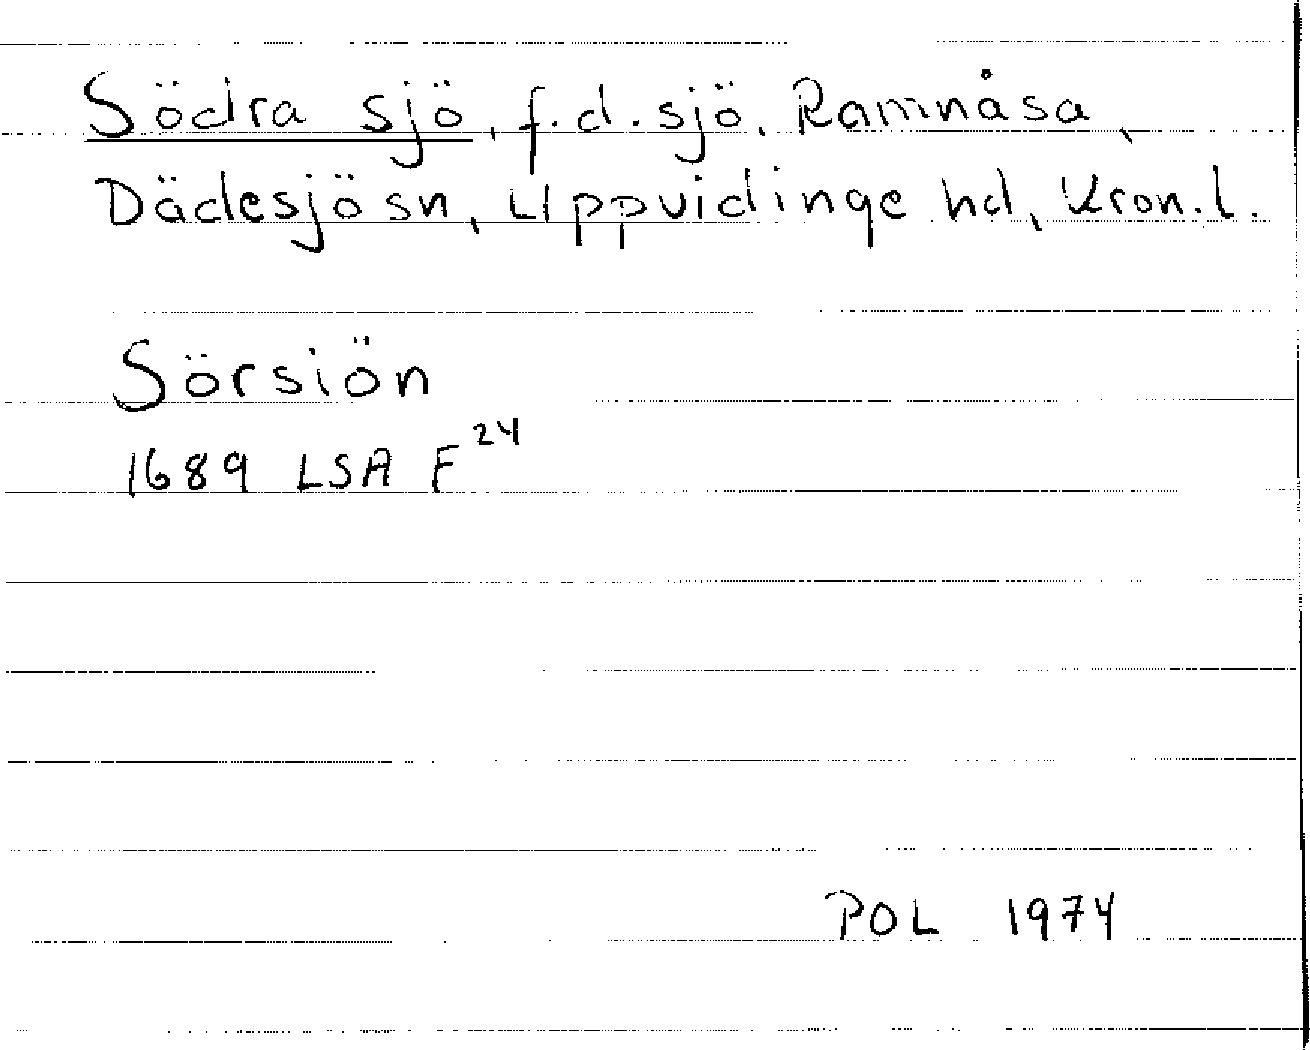 Södra sjö, f.d. sjö, Ramnåsa,
Dädesjösn, Uppvidinge hd, Kron. l.
Sörsiön
1689 LSA F 24
POL 1974